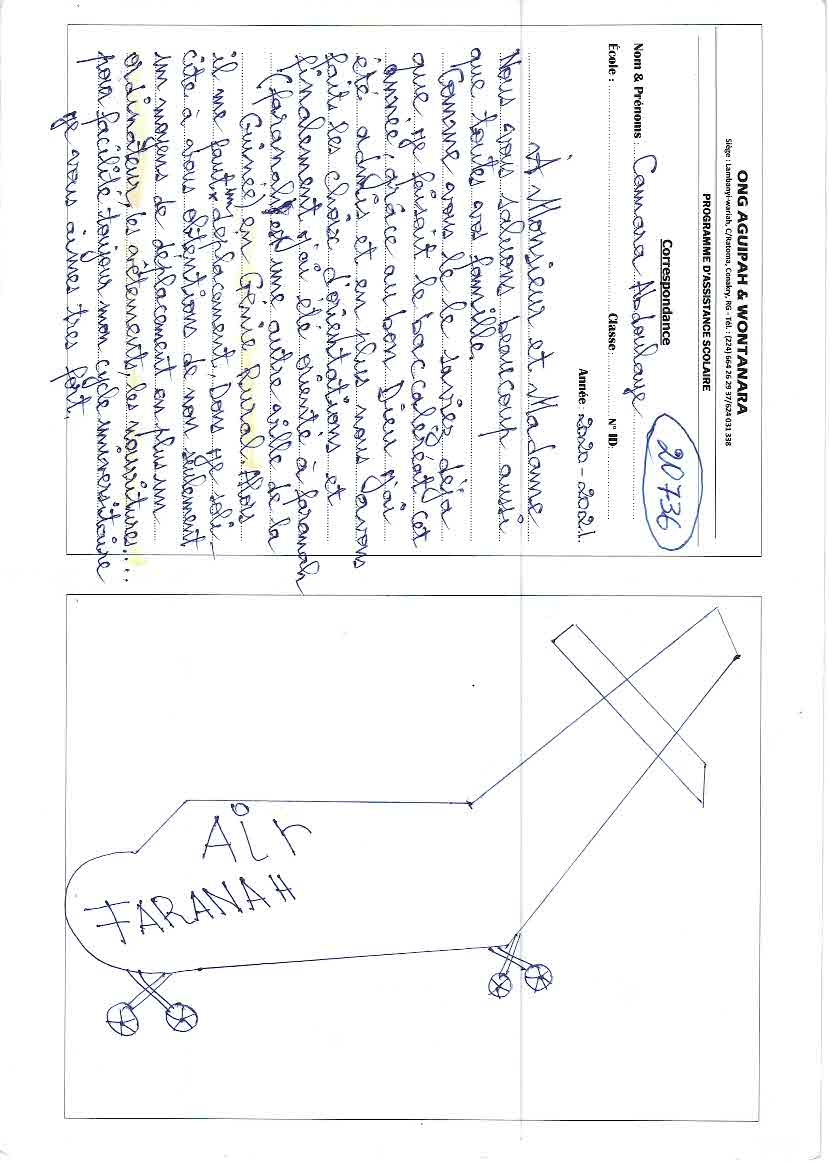 ONG AGUIPAH & WONTANARA
Siège : Lambanyi-wariah, C/Ratoma, Conakry, RG - Tél. : (224) 664 26 29 37/624 031 338
PROGRAMME D'ASSISTANCE SCOLAIRE
Correspondance
20736
Nom & Prénoms : Camara Abdoulaye
École : Classe N° ID:
Année 2020-2021.
À Monsieur et Madame
Nous vous saluons beaucoup aussi
que toutes vos famille.
Comme vous le le saviez déjà
que je faisait le baccaleréat cet
année, grâce au bon Dieu j'ai
été admis et en plus nous avons
faits les choix d'orientations et
finalement j'ai été orienté à faranah
(faranah est une autre ville de la
Guinée) en Génie Rural. Alors
il me faut un deplacement. Dons je soli-
cite à vous obtentions de non seulement
un moyens de deplacement en plus un
ordinateur, les vêtements, les nourritures...
pour facilité toujour mon cycle universitaire
je vous aimes tres fort.
Air
FARANAH